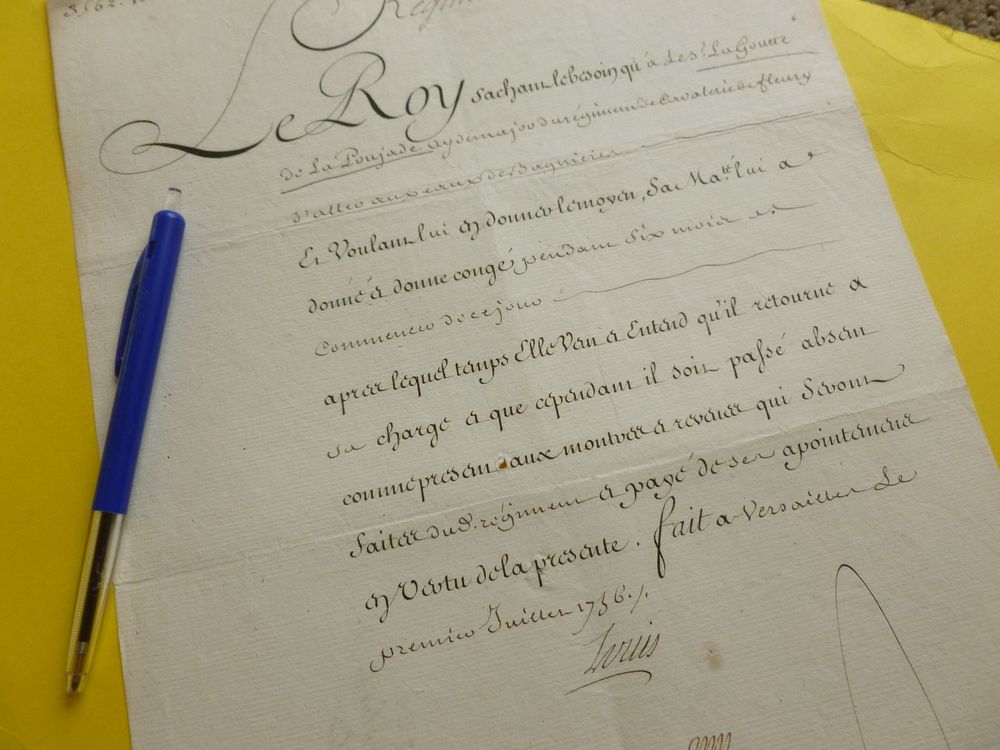 3562.
Regim
Le Roy sachant le besoin qu'a le s.r La Goutte
de La Poujade aydemajor du régiment de Cavalerie de fleury
d'aller aux eaux de Bagnieres
Et Voulant lui en donner le moyen, Sa Ma.té lui a
donné et donne congé pendant six mois
Commencer de ce jour
apres lequel temps Elle Veut et Entend qu'il retourne a
sa charge et que cependant il soit passé absent
comme present aux montres et reveues qui Seront
faites dud. regiment et payé de ses apointemens
en Vertu de la presente. fait a Versailles Le
premier Juillet 1736./.
Louis